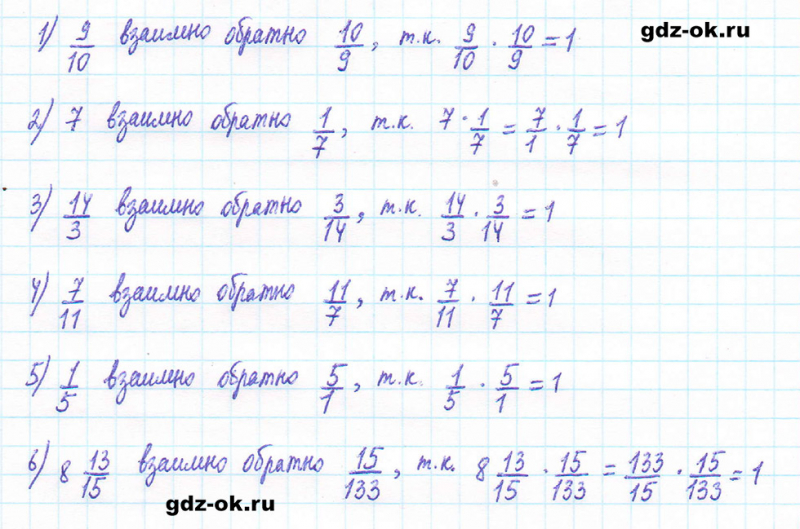 gdz-ok.ru
1) 9/10 взаимно обратно 10/9, т.к. 9/10 · 10/9 = 1
2) 7 взаимно обратно 1/7, т.к. 7 · 1/7 = 7/1 · 1/7 = 1
3) 14/3 взаимно обратно 3/14, т.к. 14/3 · 3/14 = 1
4) 7/11 взаимно обратно 11/7, т.к. 7/11 · 11/7 = 1
5) 1/5 взаимно обратно 5/1, т.к. 1/5 · 5/1 = 1
6) 8 13/15 взаимно обратно 15/133, т.к. 8 13/15 · 15/133 = 133/15 · 15/133 = 1
gdz-ok.ru